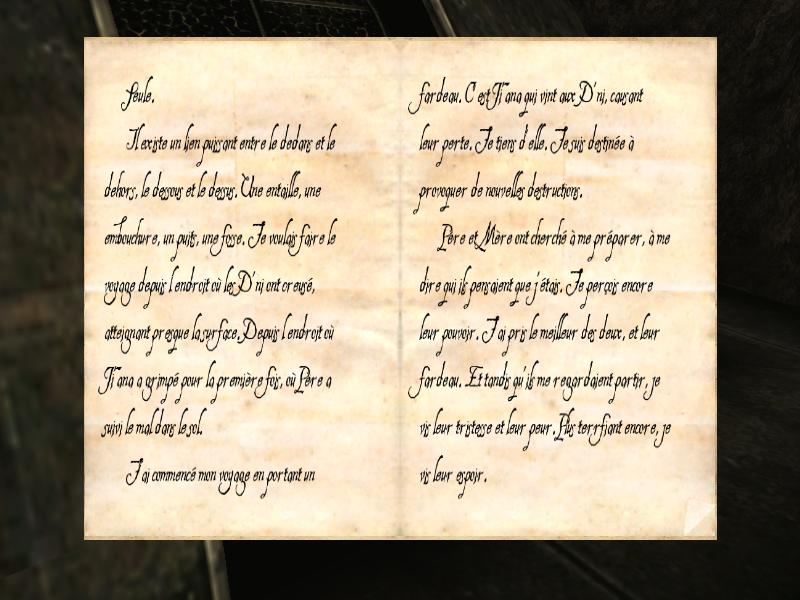 Seule.
Il existe un lien puissant entre le dedans et le
dehors, le dessous et le dessus. Une entaille, une
embouchure, un puits, une fosse. Je voulais faire le
voyage depuis l'endroit où les D'ni ont creusé,
atteignant presque la surface. Depuis l'endroit où
Ti'ana a grimpé pour la première fois, où Père a
suivi le mal dans le sol.
J'ai commencé mon voyage en portant un
fardeau. C'est Ti'ana qui vint aux D'ni, causant
leur perte. Je tiens d'elle. Je suis destinée à
provoquer de nouvelles destructions.
Père et Mère ont cherché à me préparer, à me
dire qui ils pensaient que j'étais. Je perçois encore
leur pouvoir. J'ai pris le meilleur des deux, et leur
fardeau. Et tandis qu'ils me regardaient partir, je
vis leur tristesse et leur peur. Plus terrfiant encore, je
vis leur espoir.